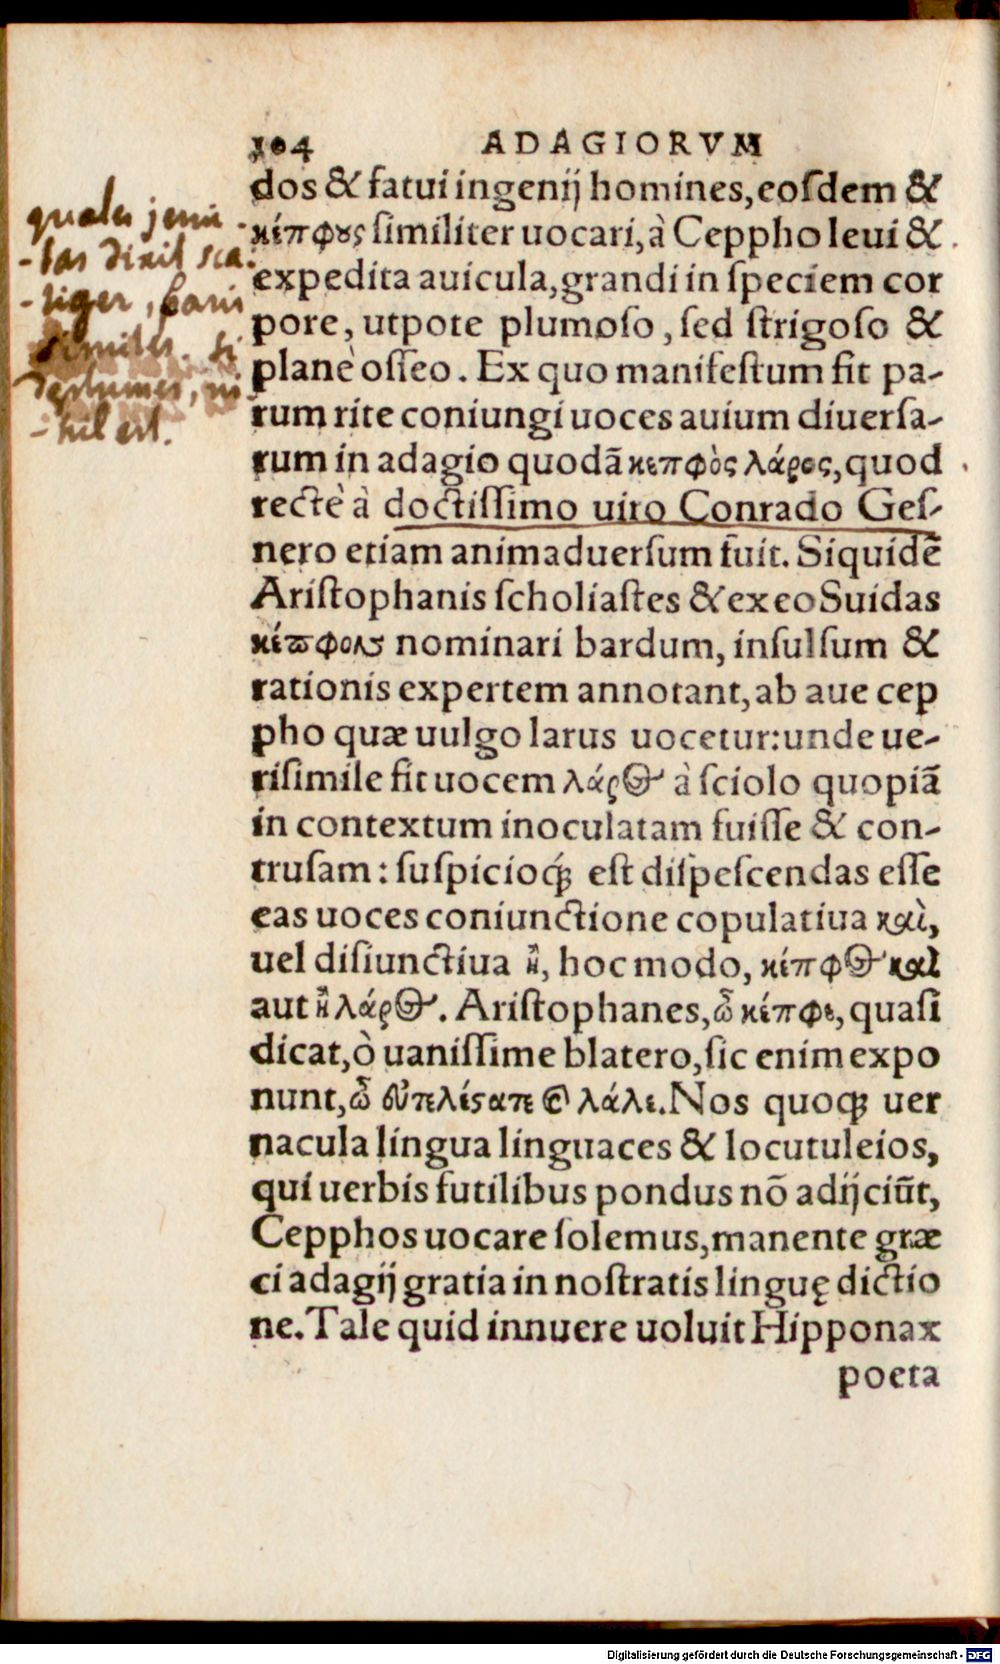 104 ADAGIORVM
dos & fatui ingenij homines, eosdem &
κέπφȣς similiter uocari, à Ceppho leui &
expedita auicula, grandi in speciem cor
pore, utpote plumoso, sed strigoso &
planè osseo. Ex quo manifestum fit pa-
rum rite coniungi uoces auium diuersa-
rum in adagio quodã κεπφὸς λάρος, quod
rectè à doctissimo uiro Conrado Ges-
nero etiam animaduersum fuit. Siquidẽ
Aristophanis scholiastes & ex eo Suidas
κέπφους nominari bardum, insulsum &
rationis expertem annotant, ab aue cep
pho quæ uulgo larus uocetur: unde ue-
risimile fit uocem λάρος à sciolo quopiã
in contextum inoculatam fuisse & con-
trusam: suspicioq́; est dispescendas esse
eas uoces coniunctione copulatiua καὶ,
uel disiunctiua ἢ, hoc modo, κέπφος καὶ
aut ἢ λάρος. Aristophanes, ὦ κέπφε, quasi
dicat, ò uanissime blatero, sic enim expo
nunt, ὦ εὐτελέςατε & λάλε. Nos quoq; uer
nacula lingua linguaces & locutuleios,
qui uerbis futilibus pondus nõ adijciũt,
Cepphos uocare solemus, manente græ
ci adagij gratia in nostratis linguę dictio
ne. Tale quid innuere uoluit Hipponax
poeta
quales jesui-
-tas dixit sca-
-liger, laris
similes. si
deplumes, ni-
-hil est.
Digitalisierung gefördert durch die Deutsche Forschungsgemeinschaft - DFG